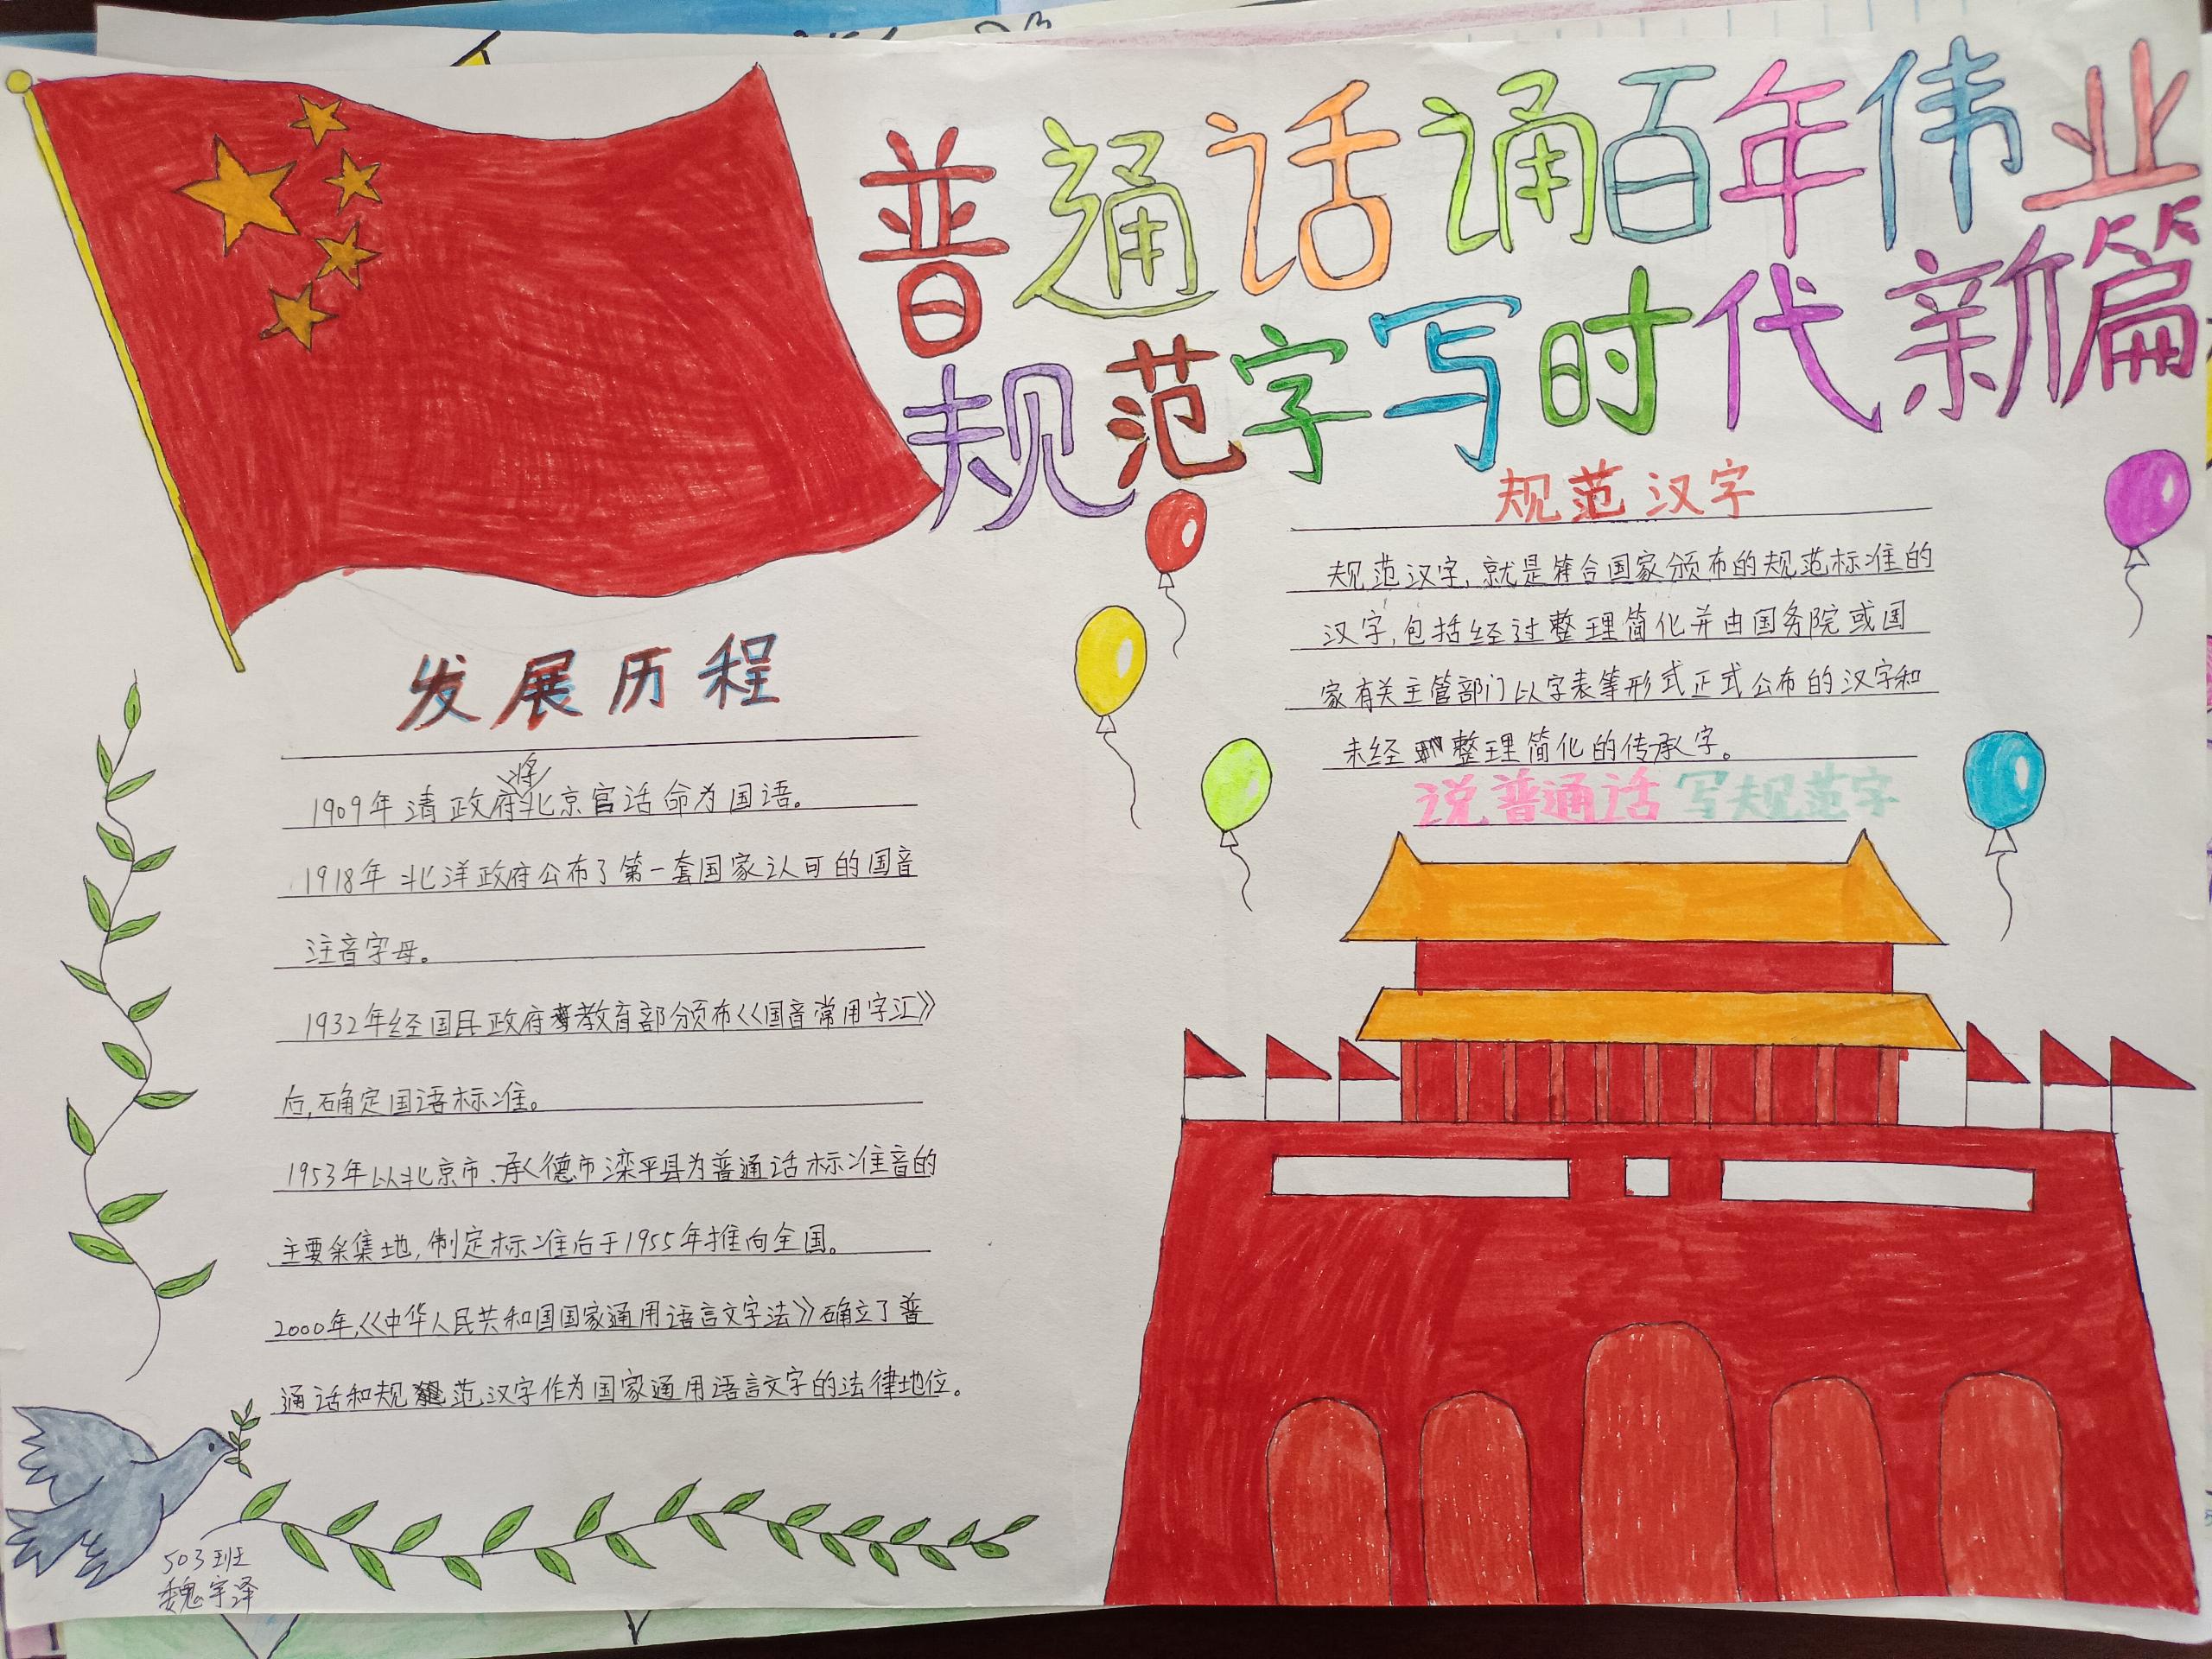 普通话诵百年伟业
规范字写时代新篇
发展历程
1909年清政府将北京官话命为国语。
1918年北洋政府公布了第一套国家认可的国音
注音字母。
1932年经国民政府教育部颁布《国音常用字汇》
后,确定国语标准。
1953年以北京市、承德市滦平县为普通话标准音的
主要采集地,制定标准后于1955年推向全国。
2000年,《中华人民共和国国家通用语言文字法》确立了普
通话和规范汉字作为国家通用语言文字的法律地位。
规范汉字
规范汉字,就是符合国家颁布的规范标准的
汉字,包括经过整理简化并由国务院或国
家有关主管部门以字表等形式正式公布的汉字和
未经整理简化的传承字。
说普通话 写规范字
503班
魏宇泽